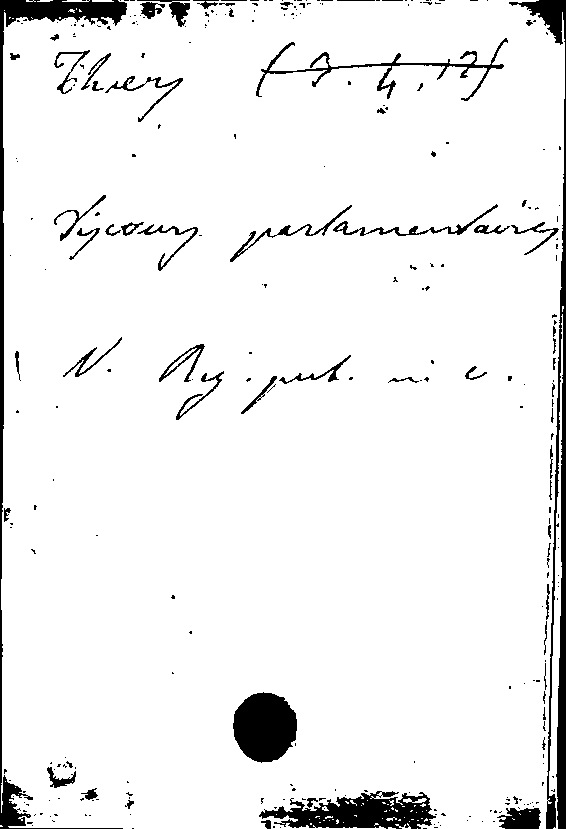 Thiers (3.4.12)
Discours parlamentaires
V. Reg. pub. in c.